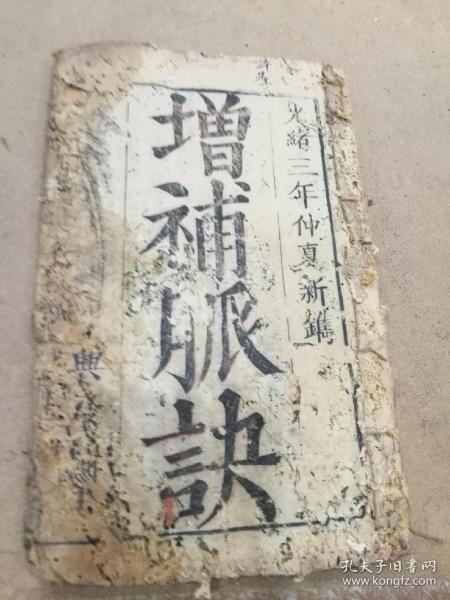 光緒三年仲夏新鐫
增補脈訣
興
孔夫子旧书网
www.kongfz.com